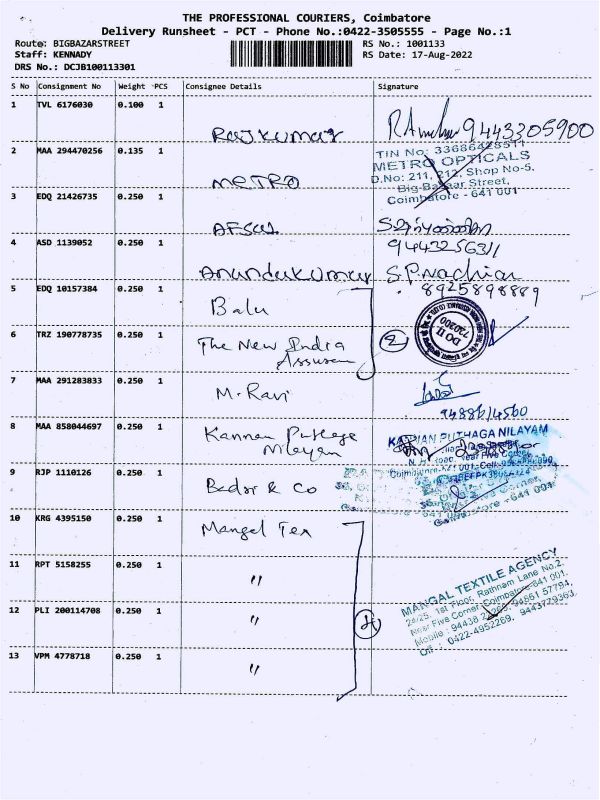 THE PROFESSIONAL COURIERS, Coimbatore
Delivery Runsheet - PCT - Phone No.:0422-3505555 - Page No.:1
Route: BIGBAZARSTREET
Staff: KENNADY
DRS No.: DCJB100113301
RS No.: 1001133
RS Date: 17-Aug-2022
S No Consignment No Weight PCS Consignee Details Signature
1 TVL 6176030 0.100 1 Rajkumar 9443305900
2 MAA 294470256 0.135 1 METRO
TIN No: 33686428511
METRO OPTICALS
D.No: 211, 212, Shop No-5,
Big Bazaar Street,
Coimbatore - 641 001
3 EDQ 21426735 0.250 1 AFSAL
9443256311
4 ASD 1139052 0.250 1 Anandakumar S.P.Nachiar
8925898889
5 EDQ 10157384 0.250 1 Balu
6 TRZ 190778735 0.250 1 The New India
Assuran 2
DO II
720300
7 MAA 291283833 0.250 1 M. Ravi
9488614560
8 MAA 858044697 0.250 1 Kannan Puthaga
Nilayam
KANNAN PUTHAGA NILAYAM
9 RJP 1110126 0.250 1 & Co
Coimbatore - 641 001
10 KRG 4395150 0.250 1 Mangal Tex
11 RPT 5158255 0.250 1 "
12 PLI 200114708 0.250 1 " 4
MANGAL TEXTILE AGENCY
24/25, 1st Floor, Rathnam Lane No.2,
Near Five Corner, Coimbatore-641 001.
Mobile : 94438 94861 57794,
Off : 0422-4952269, 9443729363
13 VPM 4778718 0.250 1 "